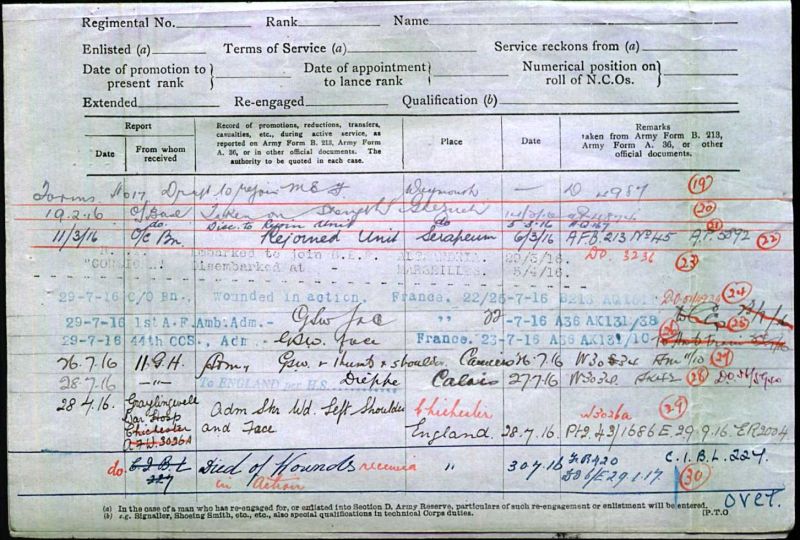 Regimental No. Rank Name
Enlisted (a) Terms of Service (a) Service reckons from (a)
Date of promotion to present rank } Date of appointment to lance rank } Numerical position on roll of N.C.Os. }
Extended Re-engaged Qualification (b)
Report
Date
From whom received
Record of promotions, reductions, transfers, casualties, etc., during active service, as reported on Army Form B. 213, Army Form A. 36, or in other official documents. The authority to be quoted in each case.
Place
Date
Remarks
taken from Army Form B. 213, Army Form A. 36, or other official documents.
No 17 Draft to rejoin M E F. Weymouth — D 4987 (19)
19.2.16 O/Base Taken on Strength (20)
do Disc. to Rejoin Unit do 5-3-16 (21)
11/3/16 O/C Bn. Rejoined Unit Serapeum 6/3/16 A.F.B. 213 No 45 A.F. 5892 (22)
Embarked to join B.E.F. ALEXANDRIA 29/3/16 DO. 3236
Disembarked at MARSEILLES 5/4/16. (23)
29-7-16 C/O Bn., Wounded in action. France. 22/26-7-16 B213 (24)
29-7-16 1st A.F.Amb: Adm.- GSW face " 22 -7-16 A36 AK131/38 (25)
29-7-16 44th CCS., Adm.- GSW face France. 23-7-16 A36 AK131/10
26.7.16 11.G.H. Adm, GSW + thumb + shoulder Camiers 26.7.16 W3034 (27)
28.7.16 —"— To ENGLAND per H.S. Dieppe Calais 27.7.16 W3034 (28)
28.4.16. Graylingwell War Hosp Chichester A.F.W. 3026A Adm Str Wd. Left Shoulder and Face Chichester England. 28.7.16. W3026a (29) 29.9.16. ER2004
do. C.I.B.L. 227 Died of Wounds received in Action " 30.7.16 FB420 /E 29.1.17. C.I.B.L. 227. (30)
over.
(a) In the case of a man who has re-engaged for, or enlisted into Section D, Army Reserve, particulars of such re-engagement or enlistment will be entered.
(b) e.g. Signaller, Shoeing Smith, etc., etc., also special qualifications in technical Corps duties. [P.T.O